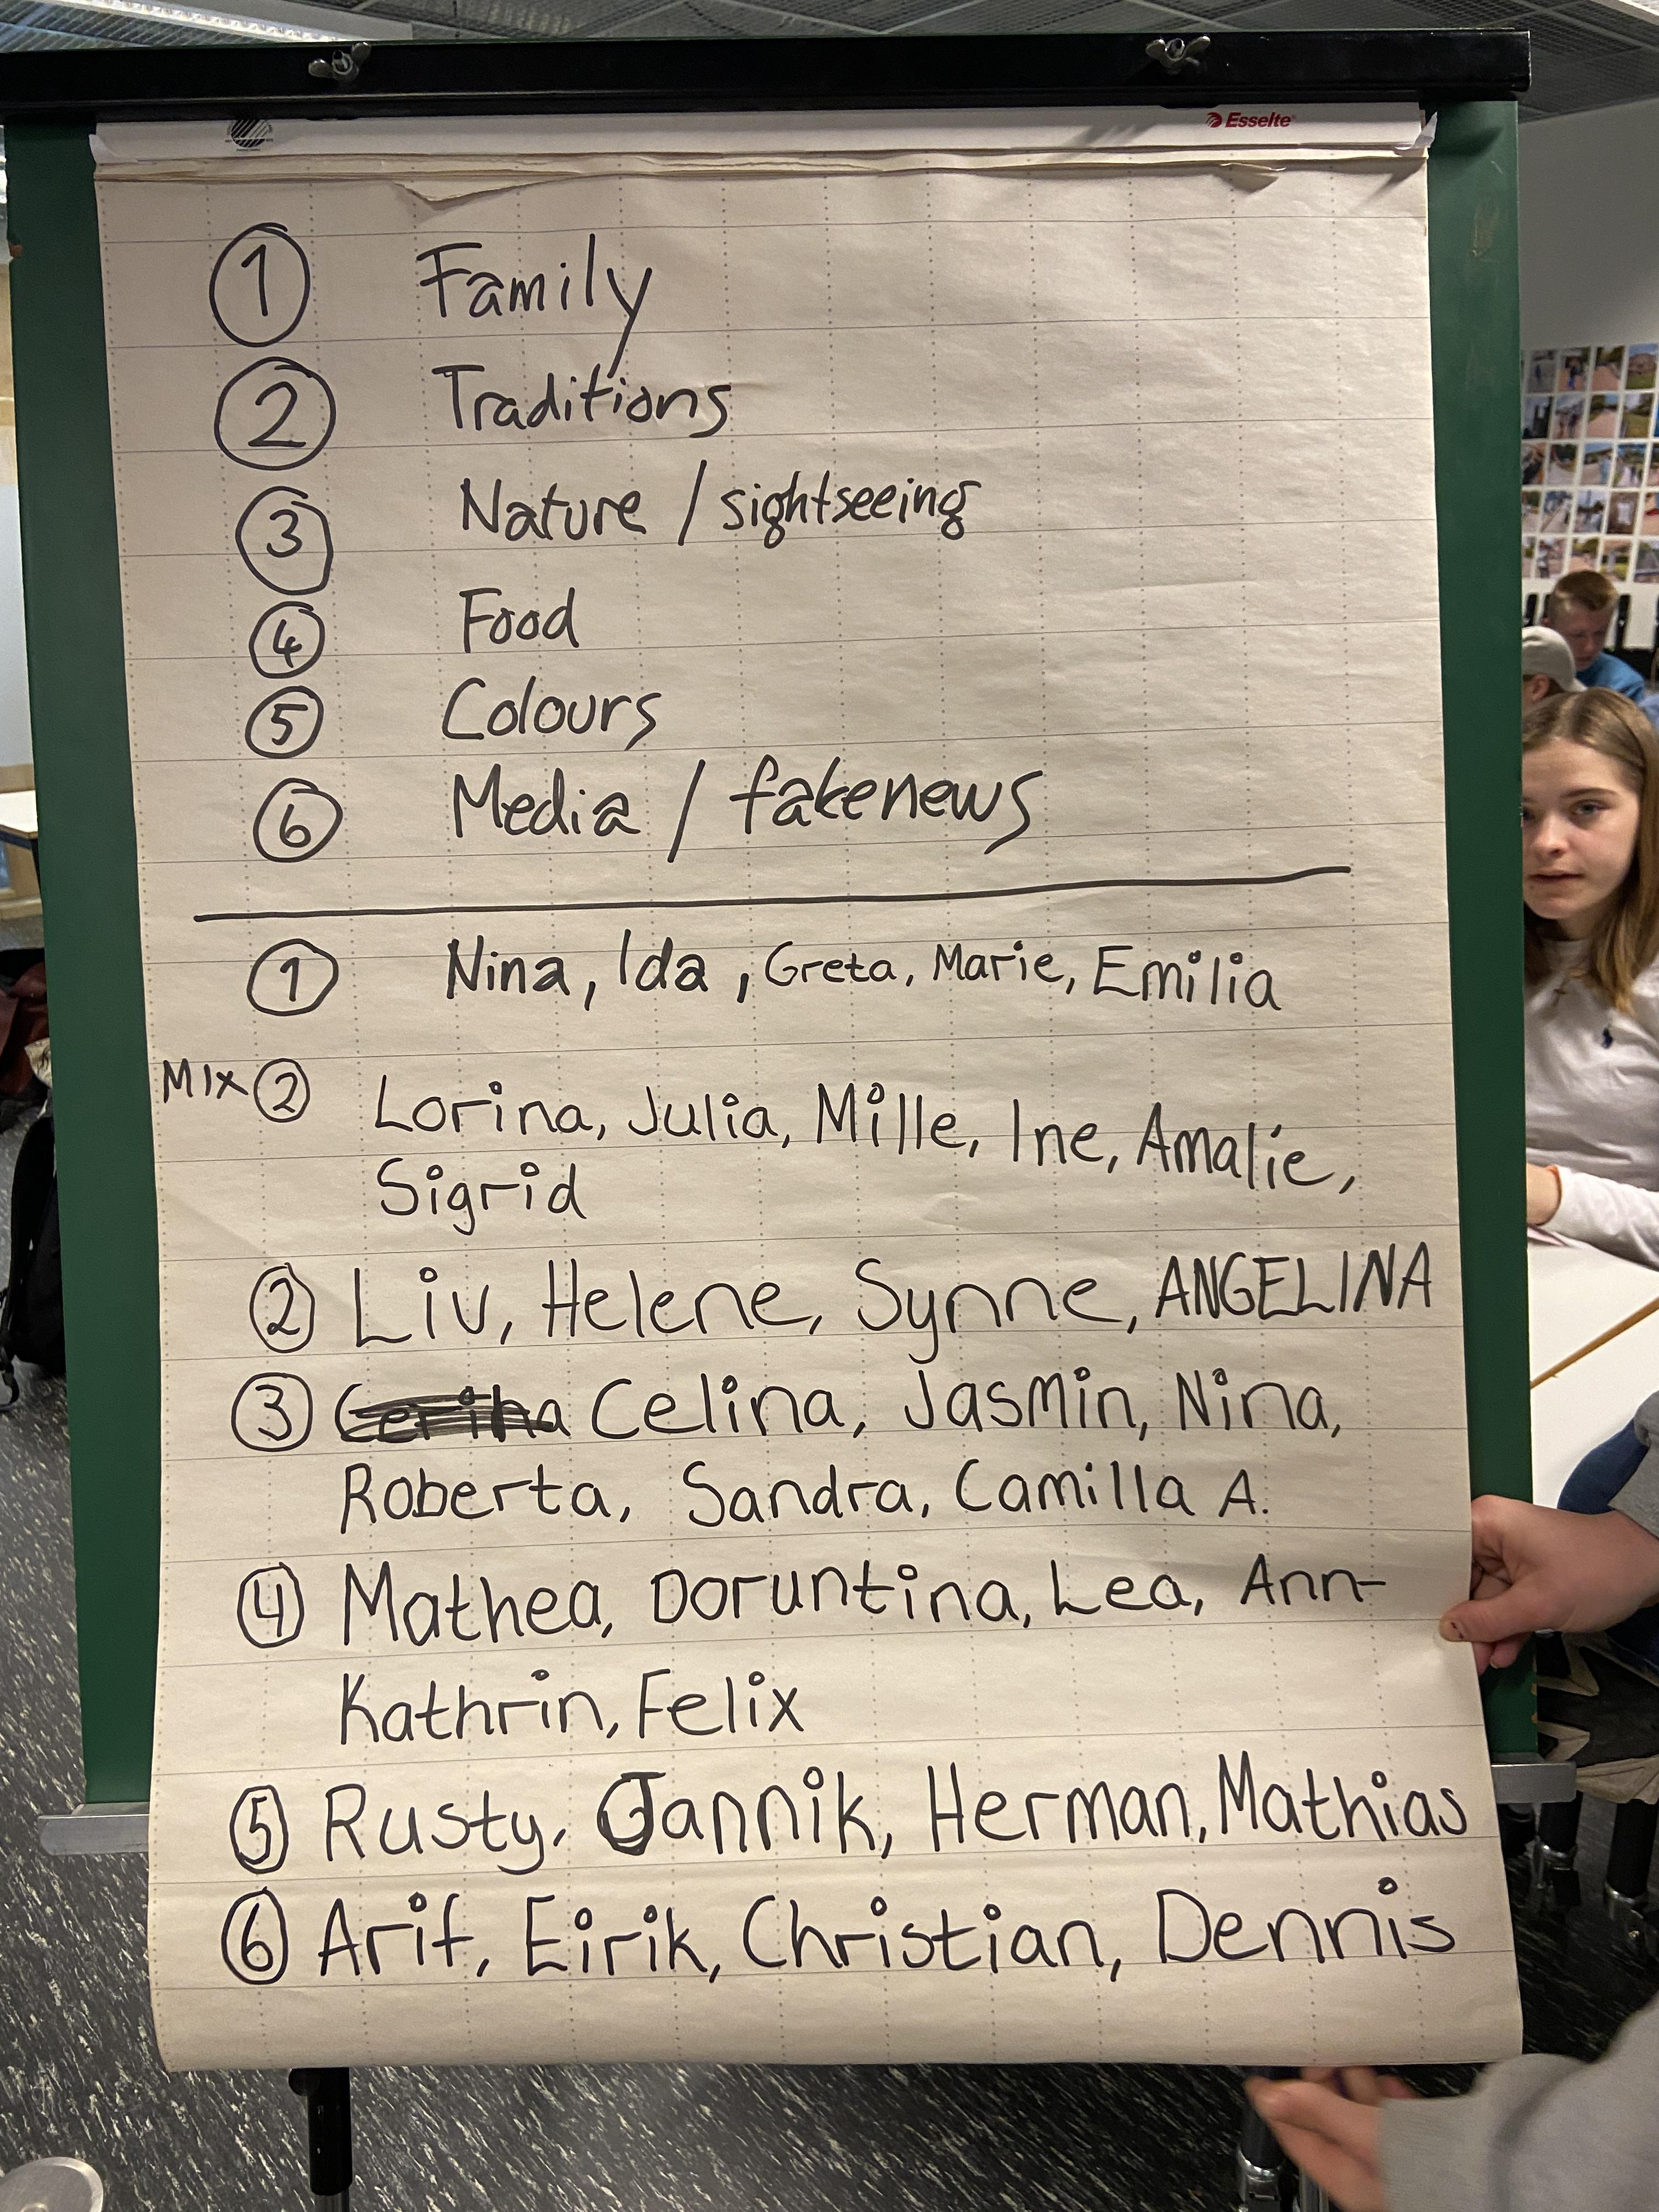 Esselte
1 Family
2 Traditions
3 Nature / sightseeing
4 Food
5 Colours
6 Media / fakenews
1 Nina, Ida, Greta, Marie, Emilia
MIX 2 Lorina, Julia, Mille, Ine, Amalie,
Sigrid
2 Liv, Helene, Synne, ANGELINA
3 Celina, Jasmin, Nina,
Roberta, Sandra, Camilla A.
4 Mathea, Doruntina, Lea, Ann-
Kathrin, Felix
5 Rusty, Jannik, Herman, Mathias
6 Arif, Eirik, Christian, Dennis